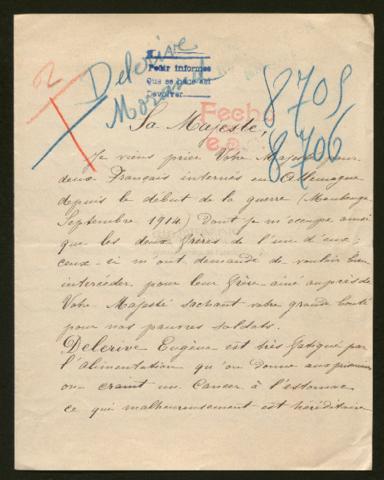 2
Delerive
Pedir informes
Que se hace así
Devolver
8705
8706
Fecha
Sa Majesté,
Je viens prier Votre Majesté pour
deux Français internés en Allemagne
depuis le début de la guerre (Maubeuge
Septembre 1914) Dont je m'occupe ainsi
que les deux frères de l'un d'eux;
ceux-ci m'ont demandé de vouloir bien
intercéder pour leur frère ainé auprès de
Votre Majesté sachant votre grande bonté
pour nos pauvres soldats.
Delerive Eugène est très fatigué par
l'alimentation qu'on donne aux prisonniers
on craint un Cancer à l'estomac
ce qui malheureusement est héréditaire